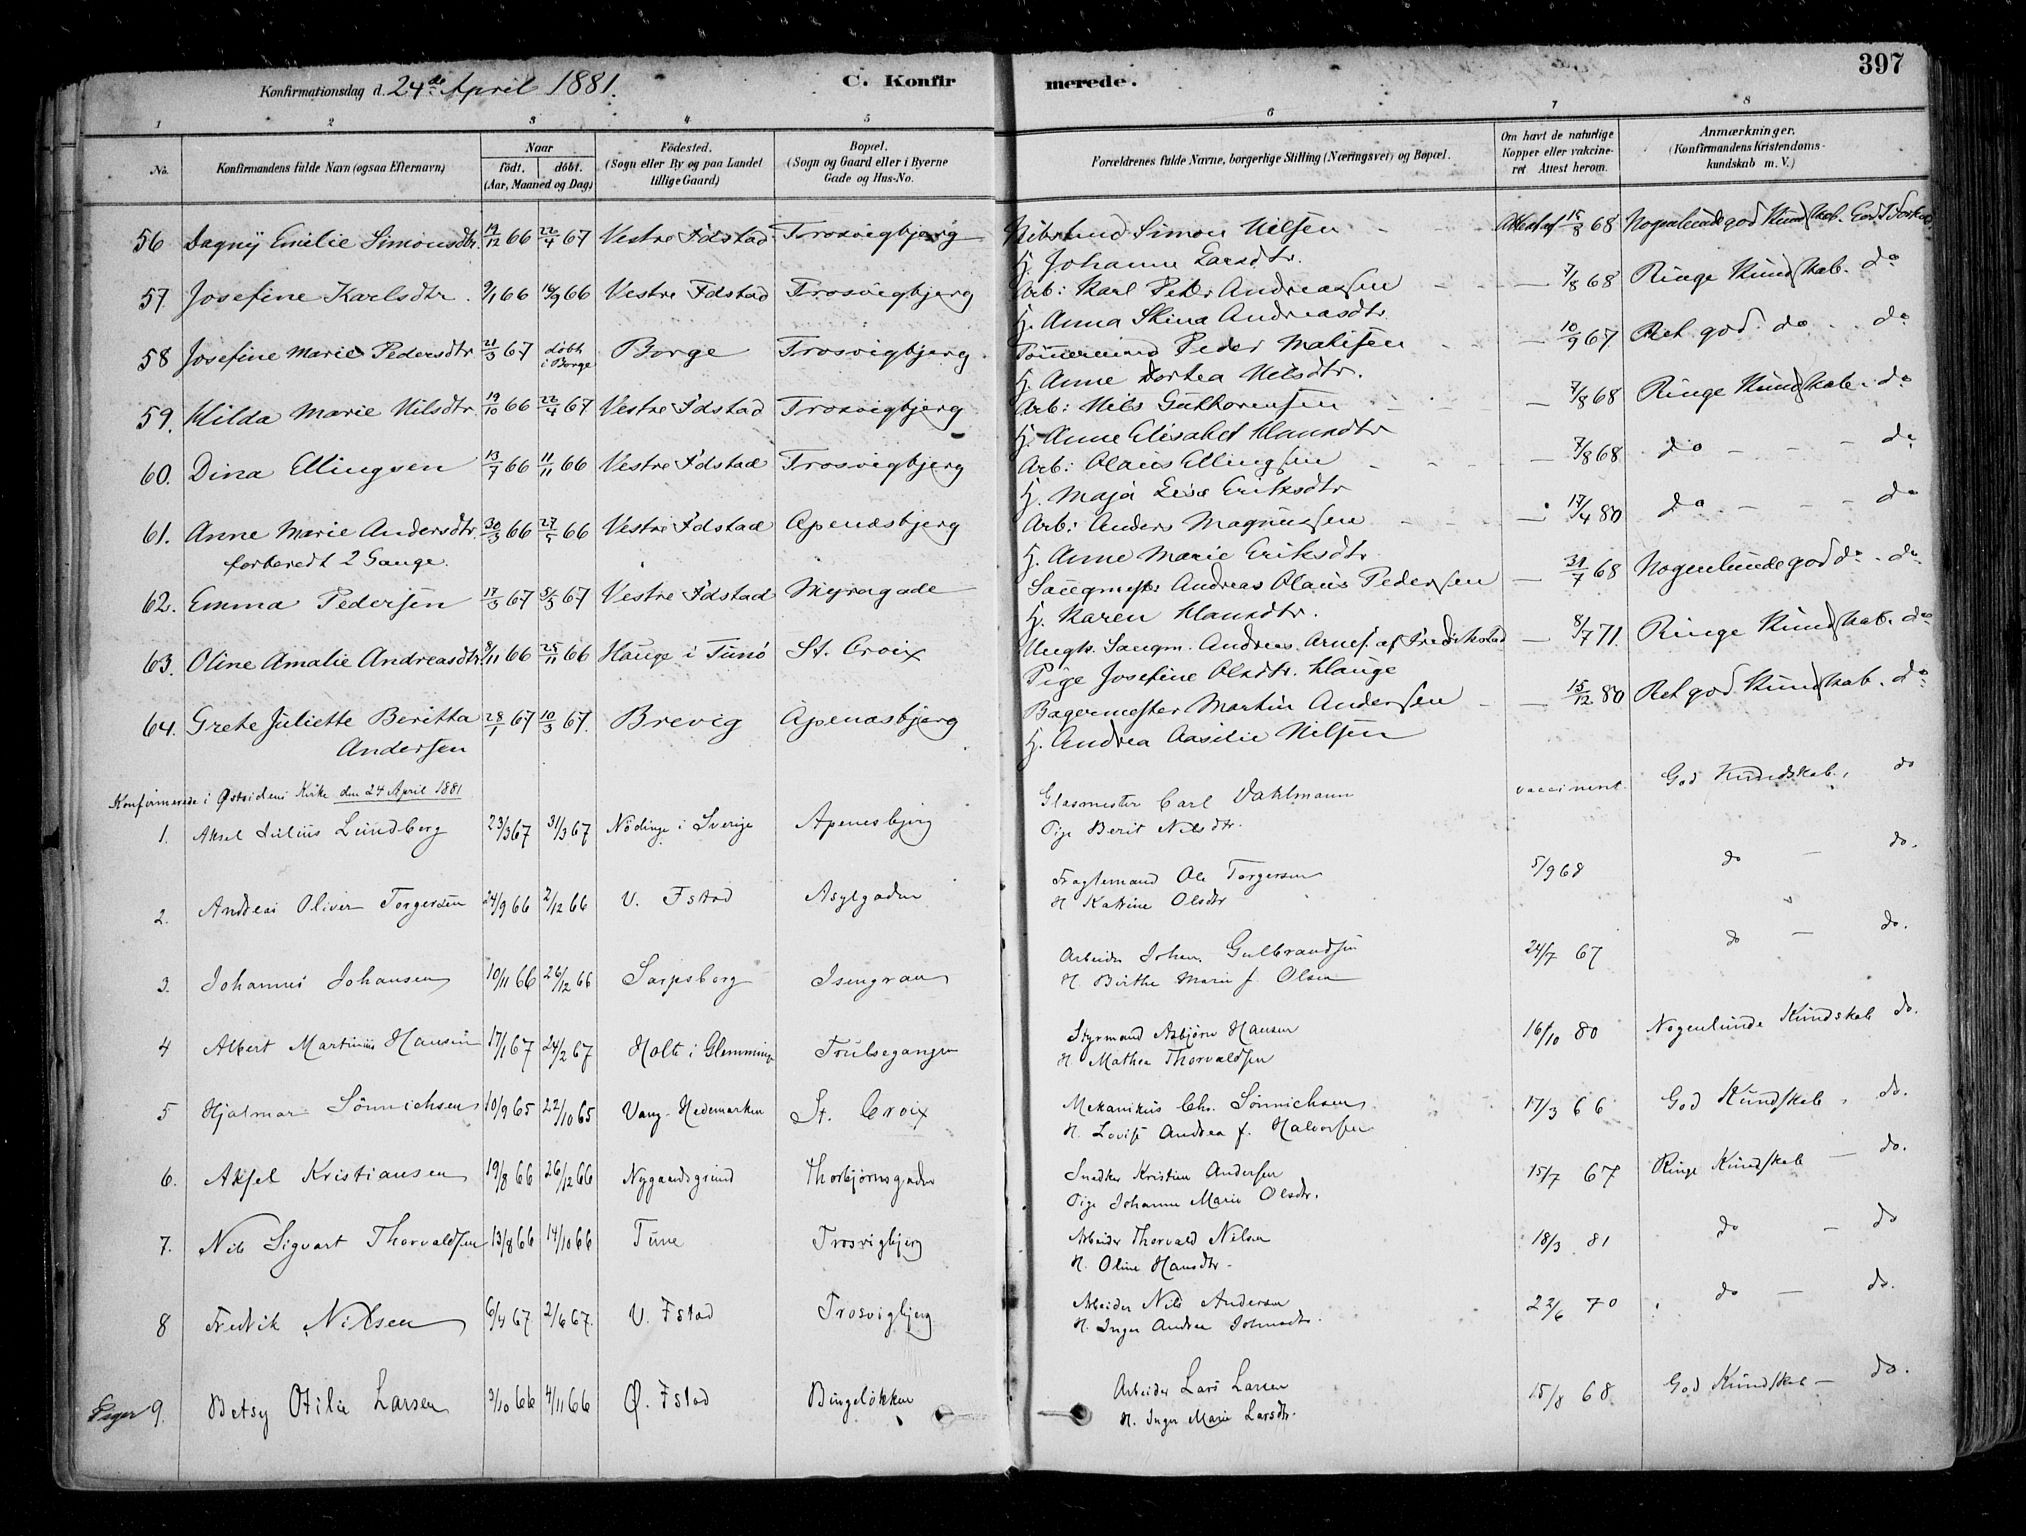 397
Konfirmationsdag d. 24de April 1881.
C. Konfirmerede.
1 2 3 4 5 6 7 8
No.
Konfirmandens fulde Navn (ogsaa Efternavn)
Naar
født. døbt.
(Aar, Maaned og Dag)
Fødested.
(Sogn eller By og paa Landet
tillige Gaard)
Bopæl.
(Sogn og Gaard eller i Byerne
Gade og Hus-No.
Forældrenes fulde Navne, borgerlige Stilling (Næringsvei) og Bopæl.
Om havt de naturlige
Kopper eller vakcine-
ret Attest herom.
Anmærkninger.
(Konfirmandens Kristendoms-
kundskab m. V.)
56 Dagny Emilie Simonsdtr. 19/12 66 22/4 67 Vestre Fdstad Trosvigbjerg Simon Nilsen Attest af 15/8 68 Nogenlunde god Kundskab. God Forhold
H. Johanne Larsdtr.
57 Josefine Karlsdtr. 9/1 66 16/9 66 Vestre Fdstad Trosvigbjerg Arb: Karl Peter Andreassen — 7/8 68 Ringe Kundskab. do
H. Anna Stina Andreasdtr.
58 Josefine Marie Pedersdtr. 21/3 67 døbt i Borge Borge Trosvigbjerg Tømmermand Peder Mathisen — 10/9 67 Ret god do do
H. Anne Dortea Nilsdtr.
59. Hilda Marie Nilsdtr. 19/10 66 22/4 67 Vestre Fdstad Trosvigbjerg Arb: Nils Guthormsen — 7/8 68 Ringe Kundskab. do
H. Anne Elisabet Hansdtr
60. Dina Ellingsen 13/7 66 11/11 66 Vestre Fdstad Trosvigbjerg Arb: Olaus Ellingsen — 7/8 68. do — do
H. Maja Lisa Eriksdtr
61. Anne Marie Andersdtr. 30/3 66 27/5 66 Vestre Fdstad Apenæsbjerg Arb: Anders Magnussen — 17/4 80 do — do
forberedt 2 Gange. H. Anne Marie Eriksdtr.
62. Emma Pedersen 17/3 67 5/5 67 Vestre Fdstad Myragade Saugmester Andreas Olaus Pedersen — 31/7 68 Nogenlunde god do. do
H. Karen Hansdtr.
63. Oline Amalie Andreasdtr. 8/11 66 25/11 66 Hauge i Tunø St. Croix Ungk. Saugm. Andreas Arnes. af Fredrikstad — 8/7 71. Ringe Kundskab. do
Pige Josefine Olsdtr. Hauge
64. Grete Juliette Beritta 28/1 67 10/3 67. Brevig Apenæsbjerg Bagermester Martin Andersen — 15/12 80 Ret god Kundskab. do
Andersen H. Andrea Aasilie Nilsen
Konfirmerede i Østsidens Kirke den 24 April 1881
1. Aksel Julius Lundberg 23/3 67 31/3 67 Nødinge i Sverige Apenesbjerg Glasmester Carl Dahlmann vaccineret. God Kundskab, do
Pige Berit Nilsdtr.
2. Andreas Oliver Torgersen 24/9 66 2/12 66 V. Fstad Asylgaden Fragtemand Ole Torgersen 5/9 68 do — do.
H. Katrine Olsdtr
3. Johannes Johansen 10/11 66 26/12 66 Sarpsborg Isengran Arbeider Johan Gulbrandsen 24/7 67 do — do.
H. Birthe Marie f. Olsen
4 Albert Martinius Hansen 17/1 67 24/2 67 Holte i Glemminge Trulsegangen Styrmand Asbjørn Hansen 16/10 80 Nogenlunde Kundskab do.
H. Mathea Thorvaldsen
5 Hjalmar Sønnichsen 10/9 65 22/10 65 Vang. Hedemarken St. Croix Mekanikus Chr. Sønnichsen 17/3 66 God Kundskab, do.
H. Lovise Andrea f. Halvorsen
6. Aksel Kristiansen 19/8 66 26/12 66 Nygaardsgrund Thorbjørnsgaden Snedker Kristian Andersen 15/7 67 Ringe Kundskab — do.
Pige Johanne Marie Olsdtr.
7. Nils Sigvart Thorvaldsen 13/8 66 14/10 66 Tune Trosvigbjerg Arbeider Thorvald Nilsen 18/3 81 do — do
H. Oline Hansdtr.
8 Fredrik Nilsen 6/4 67 2/6 67. V. Fstad Trosvigbjerg Arbeider Nils Andersen 22/6 70 do — do.
H. Inger Andrea Johnsdtr.
Piger 9. Betsy Otilie Larsen 3/10 66 4/11 66 Ø. Fstad Bingeløkken Arbeider Lars Larsen 15/8 68 God Kundskab — do.
H. Inger Marie Larsdtr.